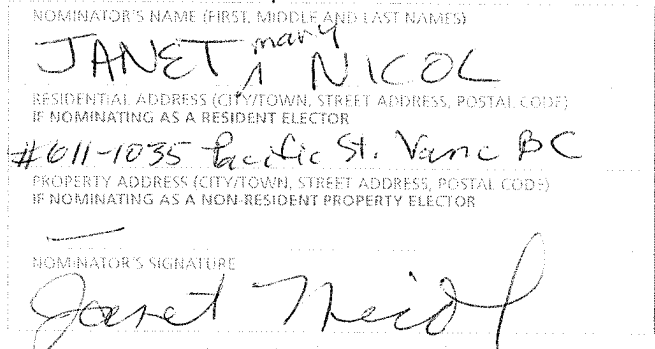 NOMINATOR'S NAME (FIRST, MIDDLE AND LAST NAMES)
JANET Mary NICOL
RESIDENTIAL ADDRESS (CITY/TOWN, STREET ADDRESS, POSTAL CODE)
IF NOMINATING AS A RESIDENT ELECTOR
#611-1035 Pacific St. Vanc BC
PROPERTY ADDRESS (CITY/TOWN, STREET ADDRESS, POSTAL CODE)
IF NOMINATING AS A NON-RESIDENT PROPERTY ELECTOR
—
NOMINATOR'S SIGNATURE
Janet Nicol